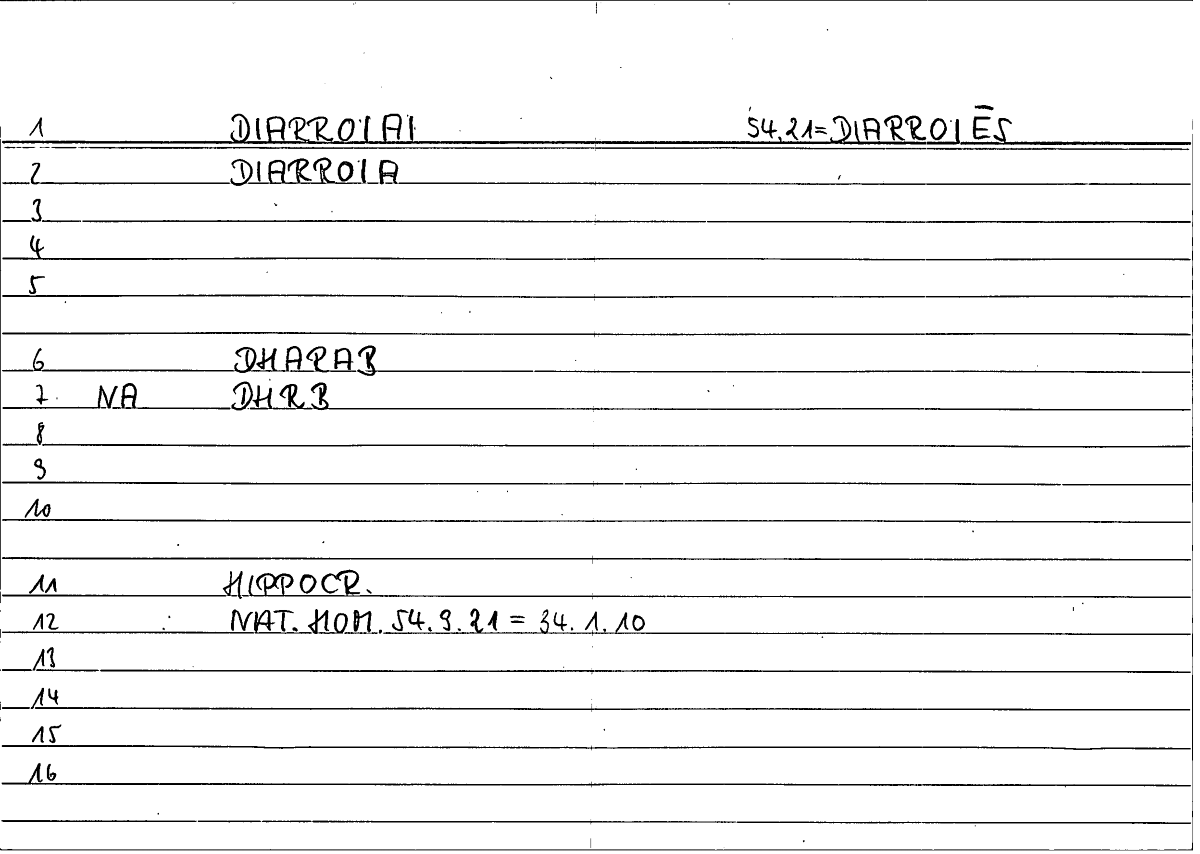 1 DIARROIAI 54.21=DIARROIĒS
2 DIARROIA
3
4
5
6 DHARAB
7 NA DHRB
8
9
10
11 HIPPOCR.
12 NAT. HOM. 54.9.21 = 34.1.10
13
14
15
16